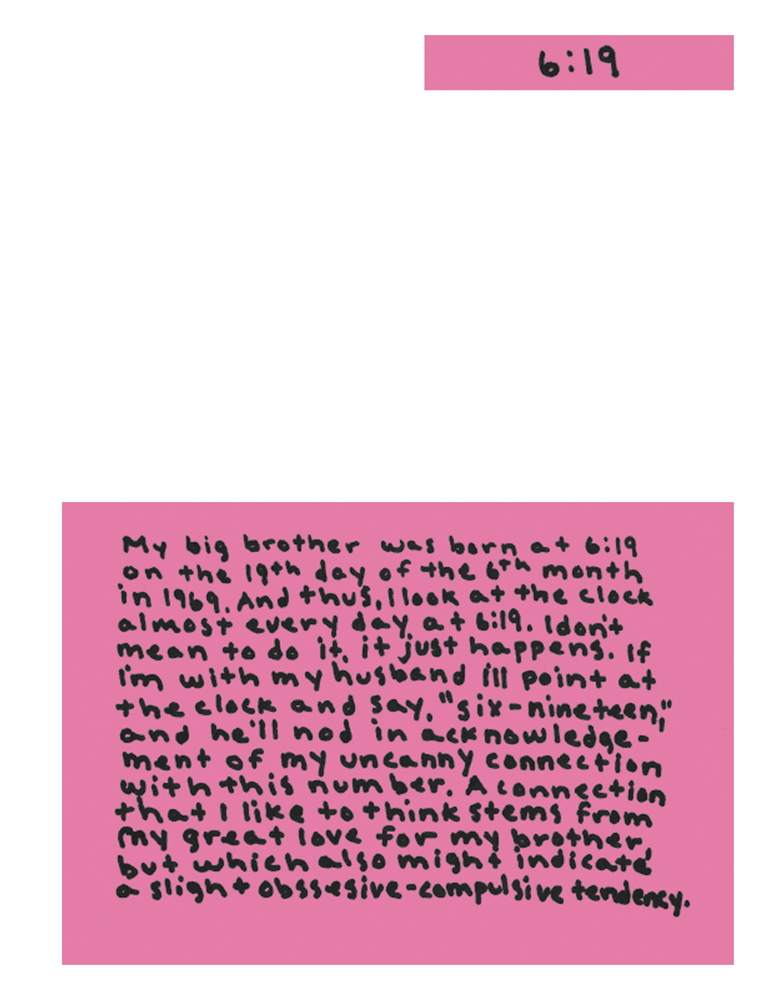 6:19
My big brother was born at 6:19
on the 19th day of the 6th month
in 1969. And thus, I look at the clock
almost every day at 6:19. I don't
mean to do it, it just happens. If
I'm with my husband I'll point at
the clock and say, "six-nineteen,"
and he'll nod in acknowledge-
ment of my uncanny connection
with this number. A connection
that I like to think stems from
my great love for my brother
but which also might indicate
a slight obssesive-compulsive tendency.